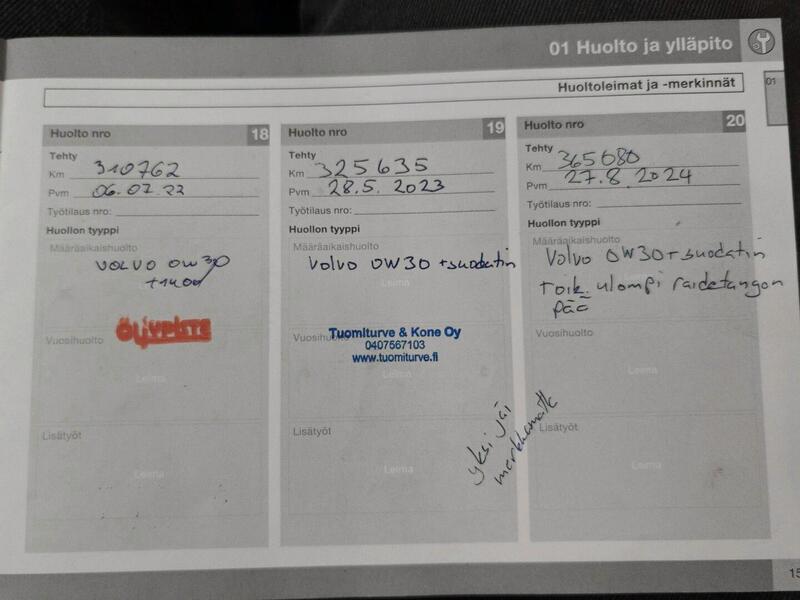 01 Huolto ja ylläpito
01
Huoltoleimat ja -merkinnät
Huolto nro 18
Tehty
Km 310762
Pvm 06.07.22
Työtilaus nro:
Huollon tyyppi
Määräaikaishuolto
VOLVO 0W30
ÖLJYPISTE
Vuosihuolto
Leima
Lisätyöt
Leima
Huolto nro 19
Tehty
Km 325635
Pvm 28.5. 2023
Työtilaus nro:
Huollon tyyppi
Määräaikaishuolto
Volvo 0W30 +suodatin
Leima
Vuosihuolto
Tuomiturve & Kone Oy
0407567103
www.tuomiturve.fi
Leima
Lisätyöt
Leima
yksi jäi
Huolto nro 20
Tehty
Km 365080
Pvm 27.8.2024
Työtilaus nro:
Huollon tyyppi
Määräaikaishuolto
Volvo 0W30+suodatin
roik. ulompi raidetangon
pää
Vuosihuolto
Leima
Lisätyöt
Leima
15